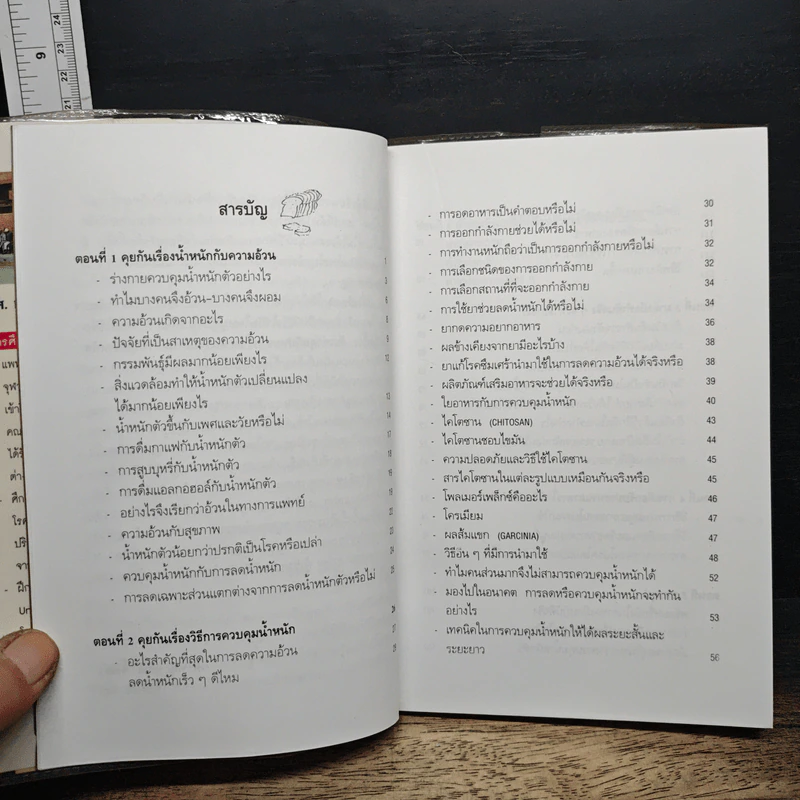 สารบัญ
ตอนที่ 1 คุยกันเรื่องน้ำหนักกับความอ้วน 1
- ร่างกายควบคุมน้ำหนักตัวอย่างไร 3
- ทำไมบางคนจึงอ้วน-บางคนจึงผอม
- ความอ้วนเกิดจากอะไร
- ปัจจัยที่เป็นสาเหตุของความอ้วน
- กรรมพันธุ์มีผลมากน้อยเพียงไร 12
- สิ่งแวดล้อมทำให้น้ำหนักตัวเปลี่ยนแปลง
ได้มากน้อยเพียงไร 13
- น้ำหนักตัวขึ้นกับเพศและวัยหรือไม่
- การดื่มกาแฟกับน้ำหนักตัว
- การสูบบุหรี่กับน้ำหนักตัว
- การดื่มแอลกอฮอล์กับน้ำหนักตัว
- อย่างไรจึงเรียกว่าอ้วนในทางการแพทย์
- ความอ้วนกับสุขภาพ
- น้ำหนักตัวน้อยกว่าปรกติเป็นโรคหรือเปล่า
- ควบคุมน้ำหนักกับการลดน้ำหนัก
- การลดเฉพาะส่วนแตกต่างจากการลดน้ำหนักตัวหรือไม่
ตอนที่ 2 คุยกันเรื่องวิธีการควบคุมน้ำหนัก
- อะไรสำคัญที่สุดในการลดความอ้วน
ลดน้ำหนักเร็ว ๆ ดีไหม
- การอดอาหารเป็นคำตอบหรือไม่ 30
- การออกกำลังกายช่วยได้หรือไม่ 31
- การทำงานหนักถือว่าเป็นการออกกำลังกายหรือไม่ 32
- การเลือกชนิดของการออกกำลังกาย 32
- การเลือกสถานที่ที่จะออกกำลังกาย 34
- การใช้ยาช่วยลดน้ำหนักได้หรือไม่ 34
- ยากดความอยากอาหาร 36
- ผลข้างเคียงจากยามีอะไรบ้าง 38
- ยาแก้โรคซึมเศร้านำมาใช้ในการลดความอ้วนได้จริงหรือ 38
- ผลิตภัณฑ์เสริมอาหารจะช่วยได้จริงหรือ 39
- ใยอาหารกับการควบคุมน้ำหนัก 40
- ไคโตซาน (CHITOSAN) 43
- ไคโตซานชอบไขมัน 44
- ความปลอดภัยและวิธีใช้ไคโตซาน 45
- สารไคโตซานในแต่ละรูปแบบเหมือนกันจริงหรือ 45
- โพลเมอร์เพล็กซ์คืออะไร 46
- โครเมียม 47
- ผลส้มแขก (GARCINIA) 47
- วิธีอื่น ๆ ที่มีการนำมาใช้ 48
- ทำไมคนส่วนมากจึงไม่สามารถควบคุมน้ำหนักได้ 52
- มองไปในอนาคต การลดหรือควบคุมน้ำหนักจะทำกัน
อย่างไร 53
- เทคนิคในการควบคุมน้ำหนักให้ได้ผลระยะสั้นและ
ระยะยาว 56